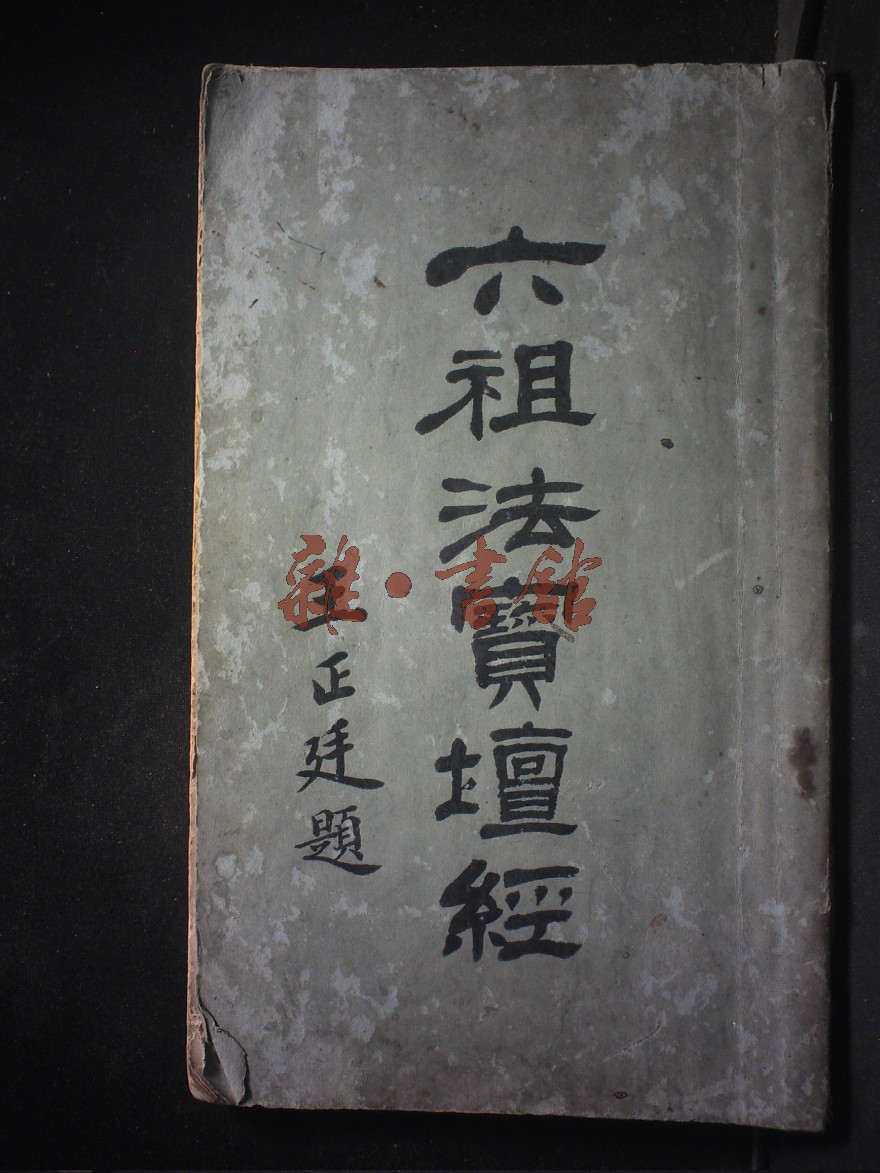 六祖法寶壇經
王正廷題
雜·書館